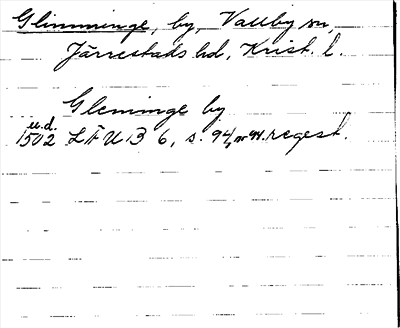 Glimminge, by, Vallby sn,
Järrestads hd, Krist. l.
Gleminge by
u.d.
1502 LÄUB 6, s. 94, nr 94. regest.